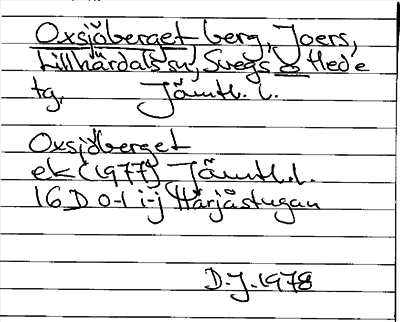 Oxsjöberget berg, Joers,
Lillhärdals sn, Svegs o Hede
tg, Jämtl. l.
Oxsjöberget
ek (1977) Jämtl. l.
16D 0-1 i-j Härjåstugan
D.J. 1978